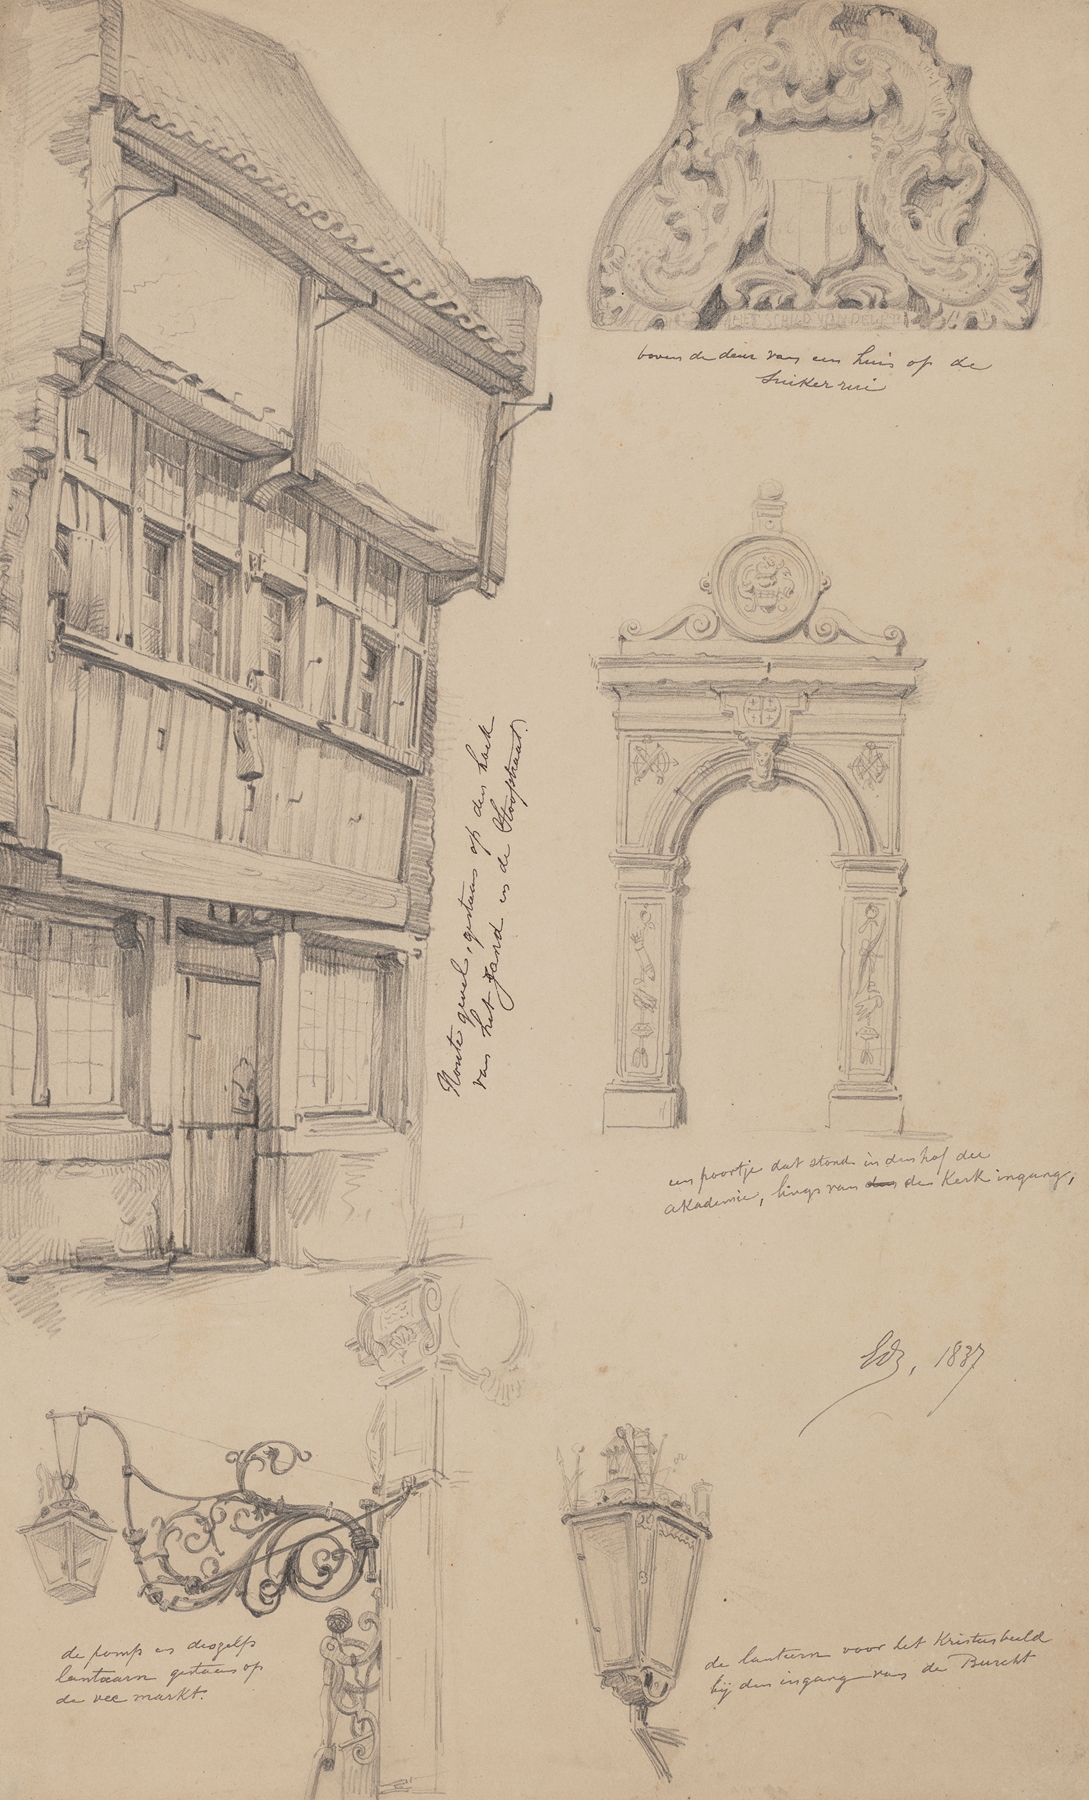 HET SCHILD VAN
boven de deur van een huis op de
Suikerrui
Houte gevel, gestaan op den hoek
van het zand en de Stoofstraat.
een poortje dat stond in den hof der
akademie, links van den der Kerk ingang,
1837
de pomp en deszelfs
lantaarn gestaan op
de vee markt.
de lantern voor het Kristusbeeld
bij den ingang van de Burcht